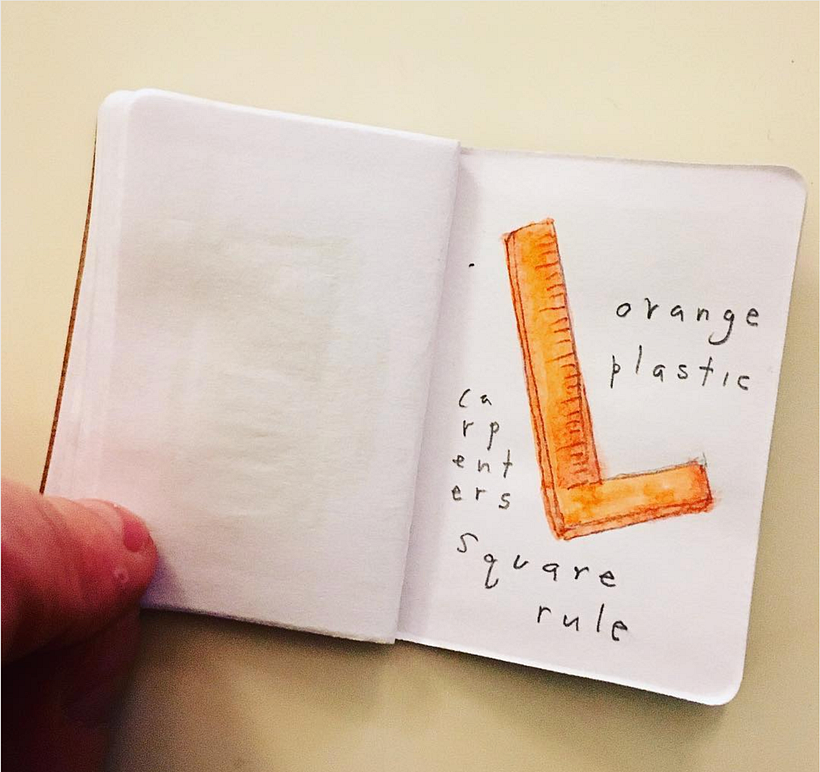 orange
plastic
ca
rp
ent
ers
square
rule